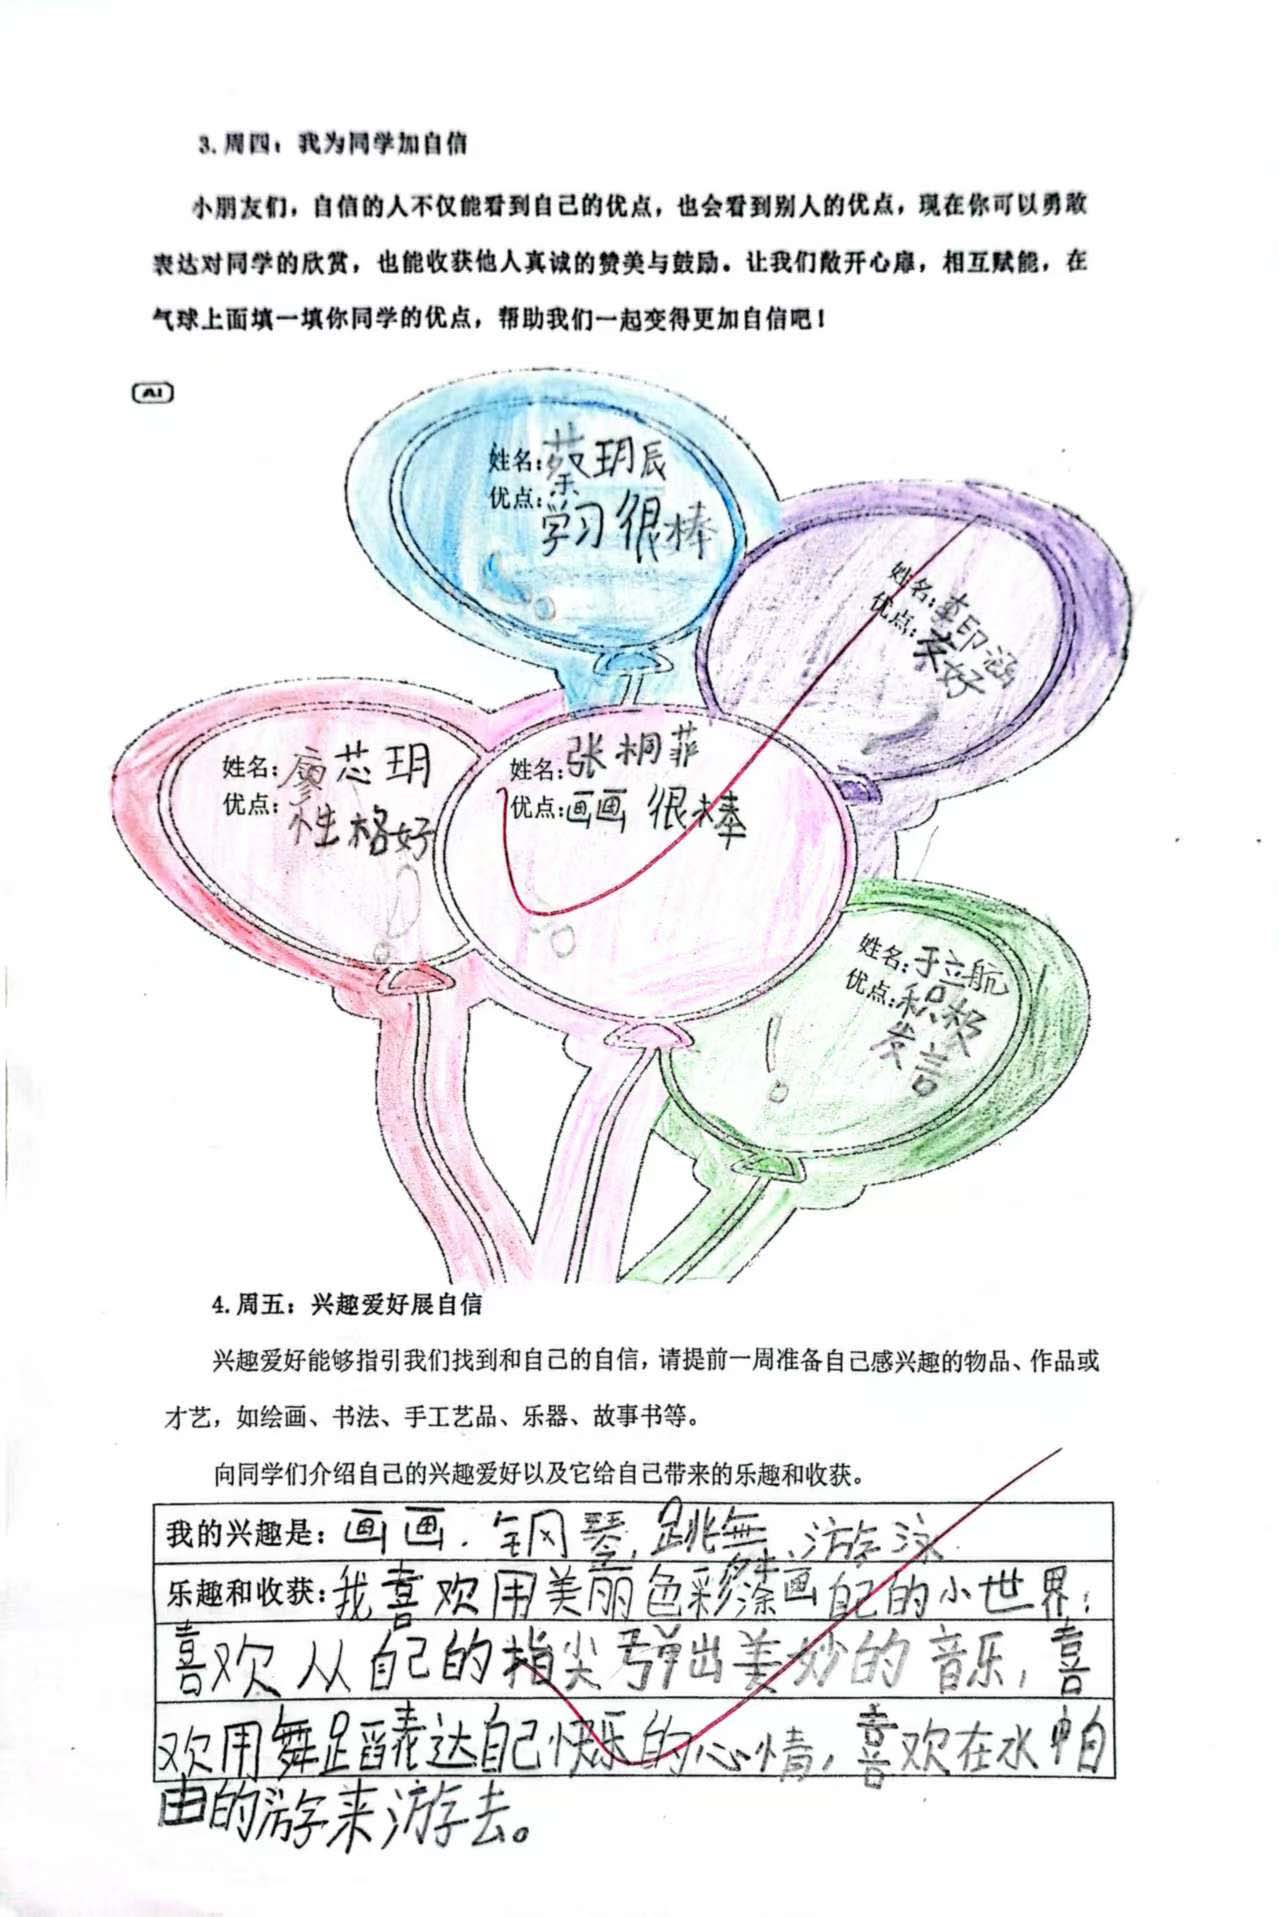 3.周四：我为同学加自信
小朋友们，自信的人不仅能看到自己的优点，也会看到别人的优点，现在你可以勇敢
表达对同学的欣赏，也能收获他人真诚的赞美与鼓励。让我们敞开心扉，相互赋能，在
气球上面填一填你同学的优点，帮助我们一起变得更加自信吧！
AI
姓名：蔡玥辰
优点：学习很棒
姓名：印涵
优点：好
姓名：廖芯玥
优点：性格好
姓名：张桐菲
优点：画画很棒
姓名：于立航
优点：积极
发言
4.周五：兴趣爱好展自信
兴趣爱好能够指引我们找到和自己的自信，请提前一周准备自己感兴趣的物品、作品或
才艺，如绘画、书法、手工艺品、乐器、故事书等。
向同学们介绍自己的兴趣爱好以及它给自己带来的乐趣和收获。
我的兴趣是：画画、钢琴、跳舞、游泳
乐趣和收获：我喜欢用美丽色彩涂画自己的小世界；
喜欢从自己的指尖弹出美妙的音乐，喜
欢用舞蹈表达自己快乐的心情，喜欢在水中自
由的游来游去。